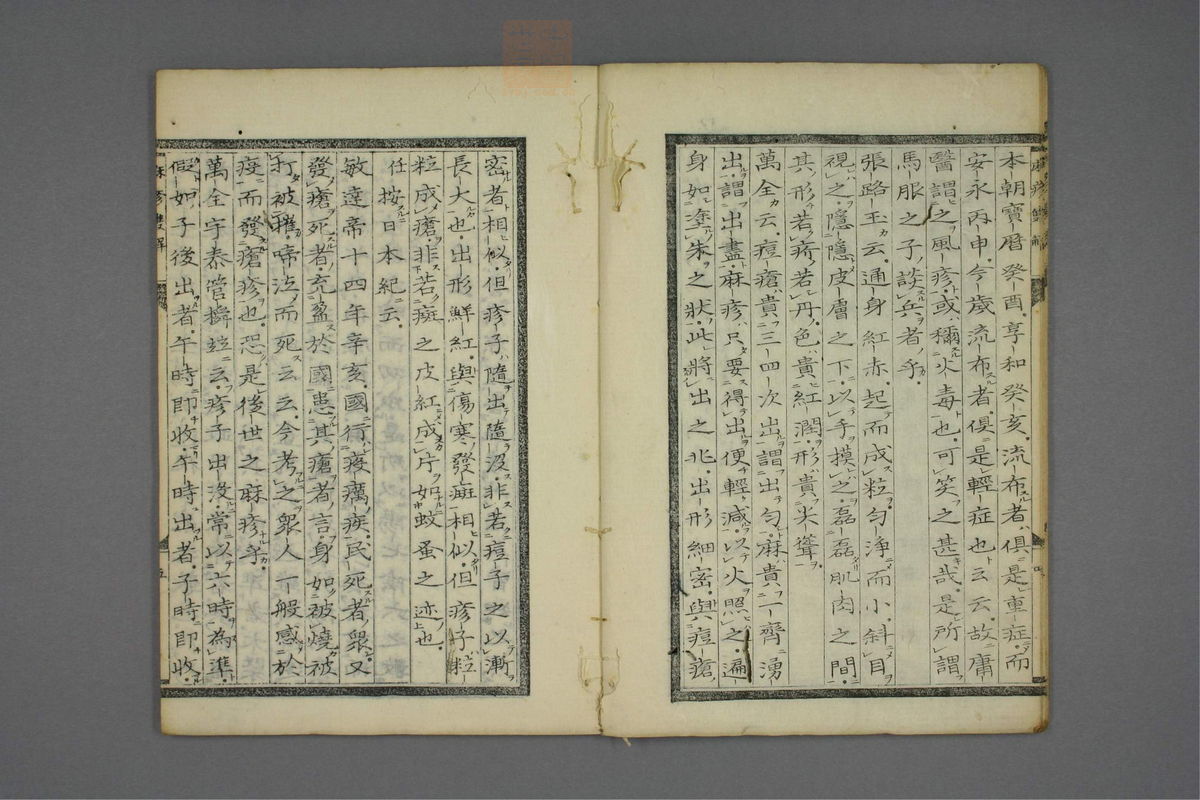 本朝寶暦癸酉享和癸亥流布者俱是重症而
安永丙申今歳流布者俱是輕症也云云故庸
醫謂之風疹或稱火毒也可笑之甚哉是所謂
馬服之子談兵者乎
張路玉云通身紅赤起而成粒勻浄而小斜目
視之隱隱皮膚之下以手摸之磊磊肌肉之間
其形若疥若丹色貴紅潤形貴尖聳
萬全云痘瘡貴三四次出謂出勻麻貴一齊湧
出謂出盡麻疹只要得出便輕減以火照之遍
身如塗朱之狀此將出之兆出形細密與痘瘡
密者相似但疹子隨出隨沒非若痘子之以漸
長大也出形鮮紅與傷寒發斑相似但疹子粒
粒成瘡非若斑之皮紅成片如蚊蚤之迹也
任按日本紀云
敏達帝十四年辛亥國行疫癘疾民死者衆又
發瘡死者充盈於國患其瘡者言身如被燒被
打被摧啼泣而死云云今考之衆人一般感於
疫而發瘡疹也恐是後世之麻疹乎
萬全宇泰管橓竝云疹子出沒常以六時為準
假如子後出者午時即收午時出者子時即收
麻疹
五